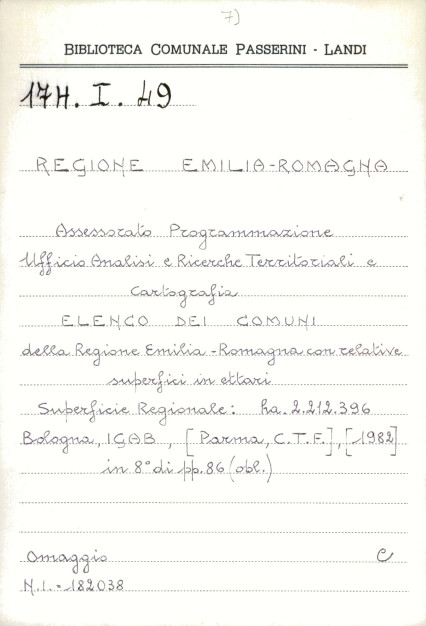 7)
BIBLIOTECA COMUNALE PASSERINI - LANDI
17H. I. 49
REGIONE EMILIA-ROMAGNA
Assessorato Programmazione
Ufficio Analisi e Ricerche Territoriali e
Cartografia
ELENCO DEI COMUNI
della Regione Emilia-Romagna con relative
superfici in ettari
Superficie Regionale: ha. 2.212.396
Bologna, IGAB, [Parma, C.T.F.], [1982]
in 8° di pp. 86 (obl.)
Omaggio C
N.I. - 182038